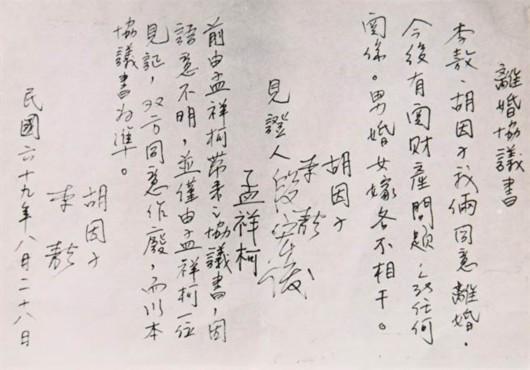 離婚協議書
李敖、胡因子我倆同意離婚.
今後有關財產問題任何
關係。男婚女嫁各不相干。
胡因子
李敖
見證人段宏俊
孟祥柯
前由孟祥柯帶来之協議書,因
語意不明,並僅由孟祥柯一位
見証,双方同意作廢,而以本
協議書为準。
胡因子
李敖
民國六十九年八月二十八日